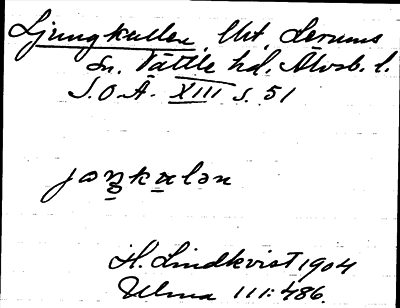 Ljungkullen, Utl. Lerums
sn. Vättle hd. Älvsb. l.
S.O.Ä. XIII s. 51
jɷŋkɑlən
H. Lindkvist 1904
Ulma 111:486.